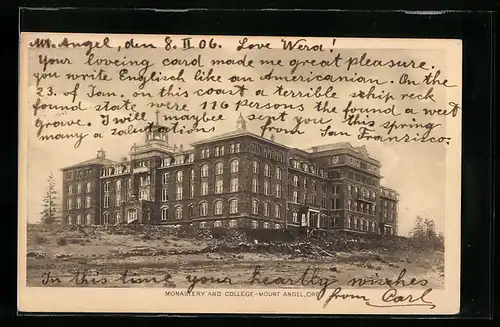 Mt. Angel, den 8. II 06. Love Wera!
Your loveing card made me great pleasure.
you write Englisch like an Americanian. On the
23. of Jan. on this coast a terrible ship reck
found state were 116 persons the found a weet
grave. I will maybee sent you this spring
many a salutations from San Franzisco.
In this time your heartly wisches
MONASTERY AND COLLEGE-MOUNT ANGEL, ORE
from Carl